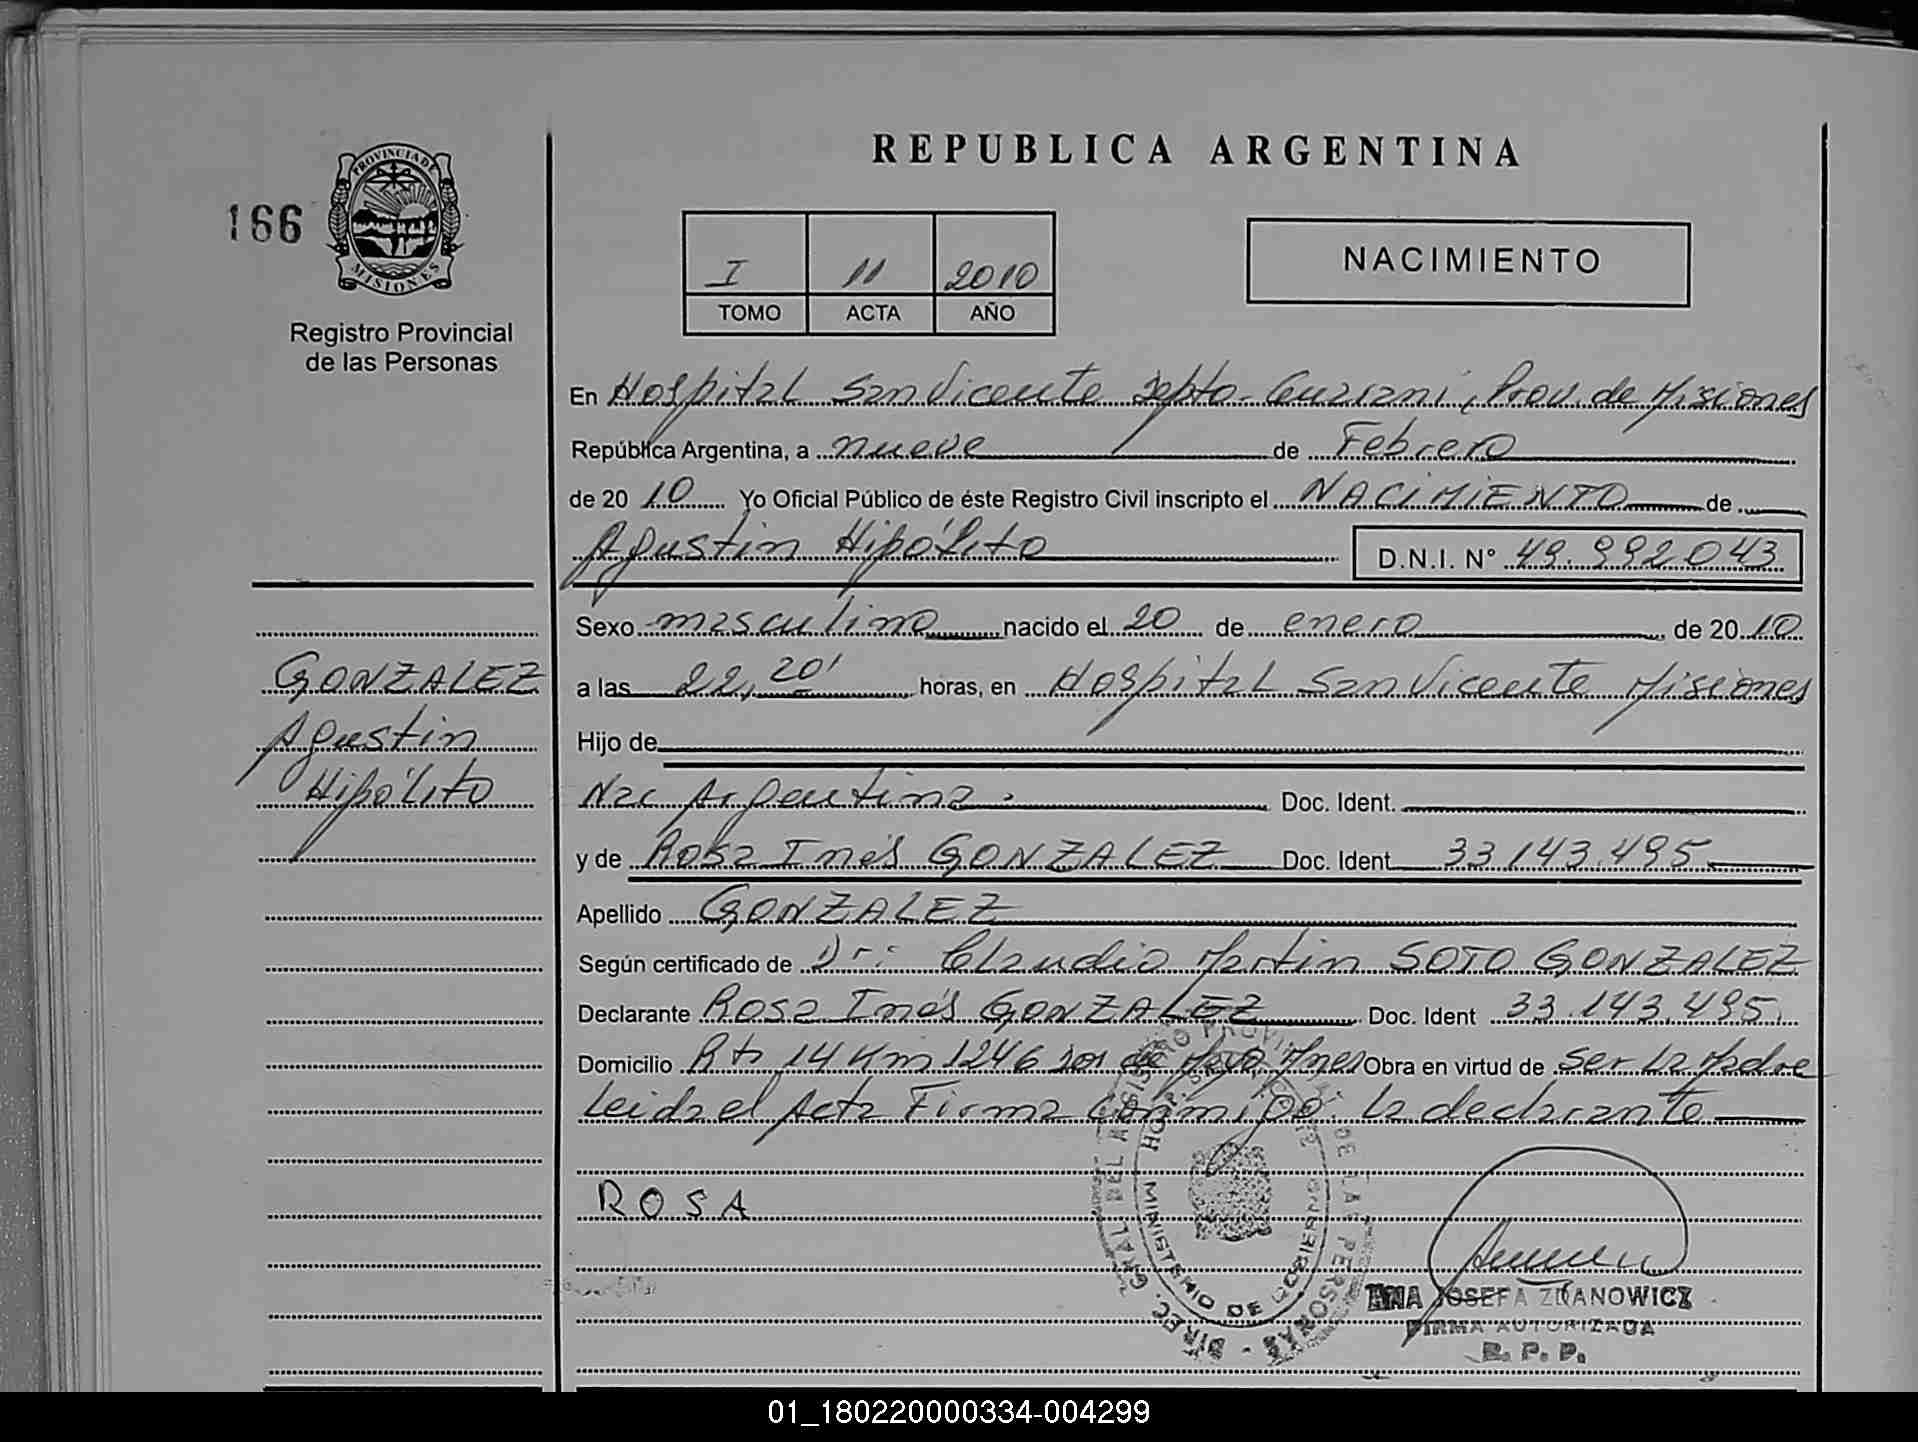 REPUBLICA ARGENTINA
166
PROVINCIA DE
MISIONES
Registro Provincial
de las Personas
I 11 2010
TOMO ACTA AÑO
NACIMIENTO
En Hospital San Vicente Dpto. Guarani, Prov. de Misiones
República Argentina, a nueve de Febrero
de 2010 Yo Oficial Público de éste Registro Civil inscripto el NACIMIENTO de
Agustin Hipólito D.N.I. N° 49.992043
Sexo masculino nacido el 20 de enero de 2010
a las 22,20' horas, en Hospital San Vicente Misiones
Hijo de
Nac Argentina. Doc. Ident.
y de Rosa Inés GONZALEZ Doc. Ident 33.143.495
Apellido GONZALEZ
Según certificado de Dr: Claudio Martin SOTO GONZALEZ
Declarante Rosa Inés GONZALEZ Doc. Ident 33.143.495.
Domicilio Rta 14 Km 1246 de Mayo Mnes Obra en virtud de ser la Madre
Leida el Acta Firma conmigo la declarante
ROSA
GONZALEZ
Agustin
Hipólito
DIREC. GRAL DEL REGISTRO PROVINCIAL DE LAS PERSONAS
MINISTERIO DE GOBIERNO
JOSEFA ZDANOWICZ
FIRMA AUTORIZADA
R. P. P.
01_180220000334-004299